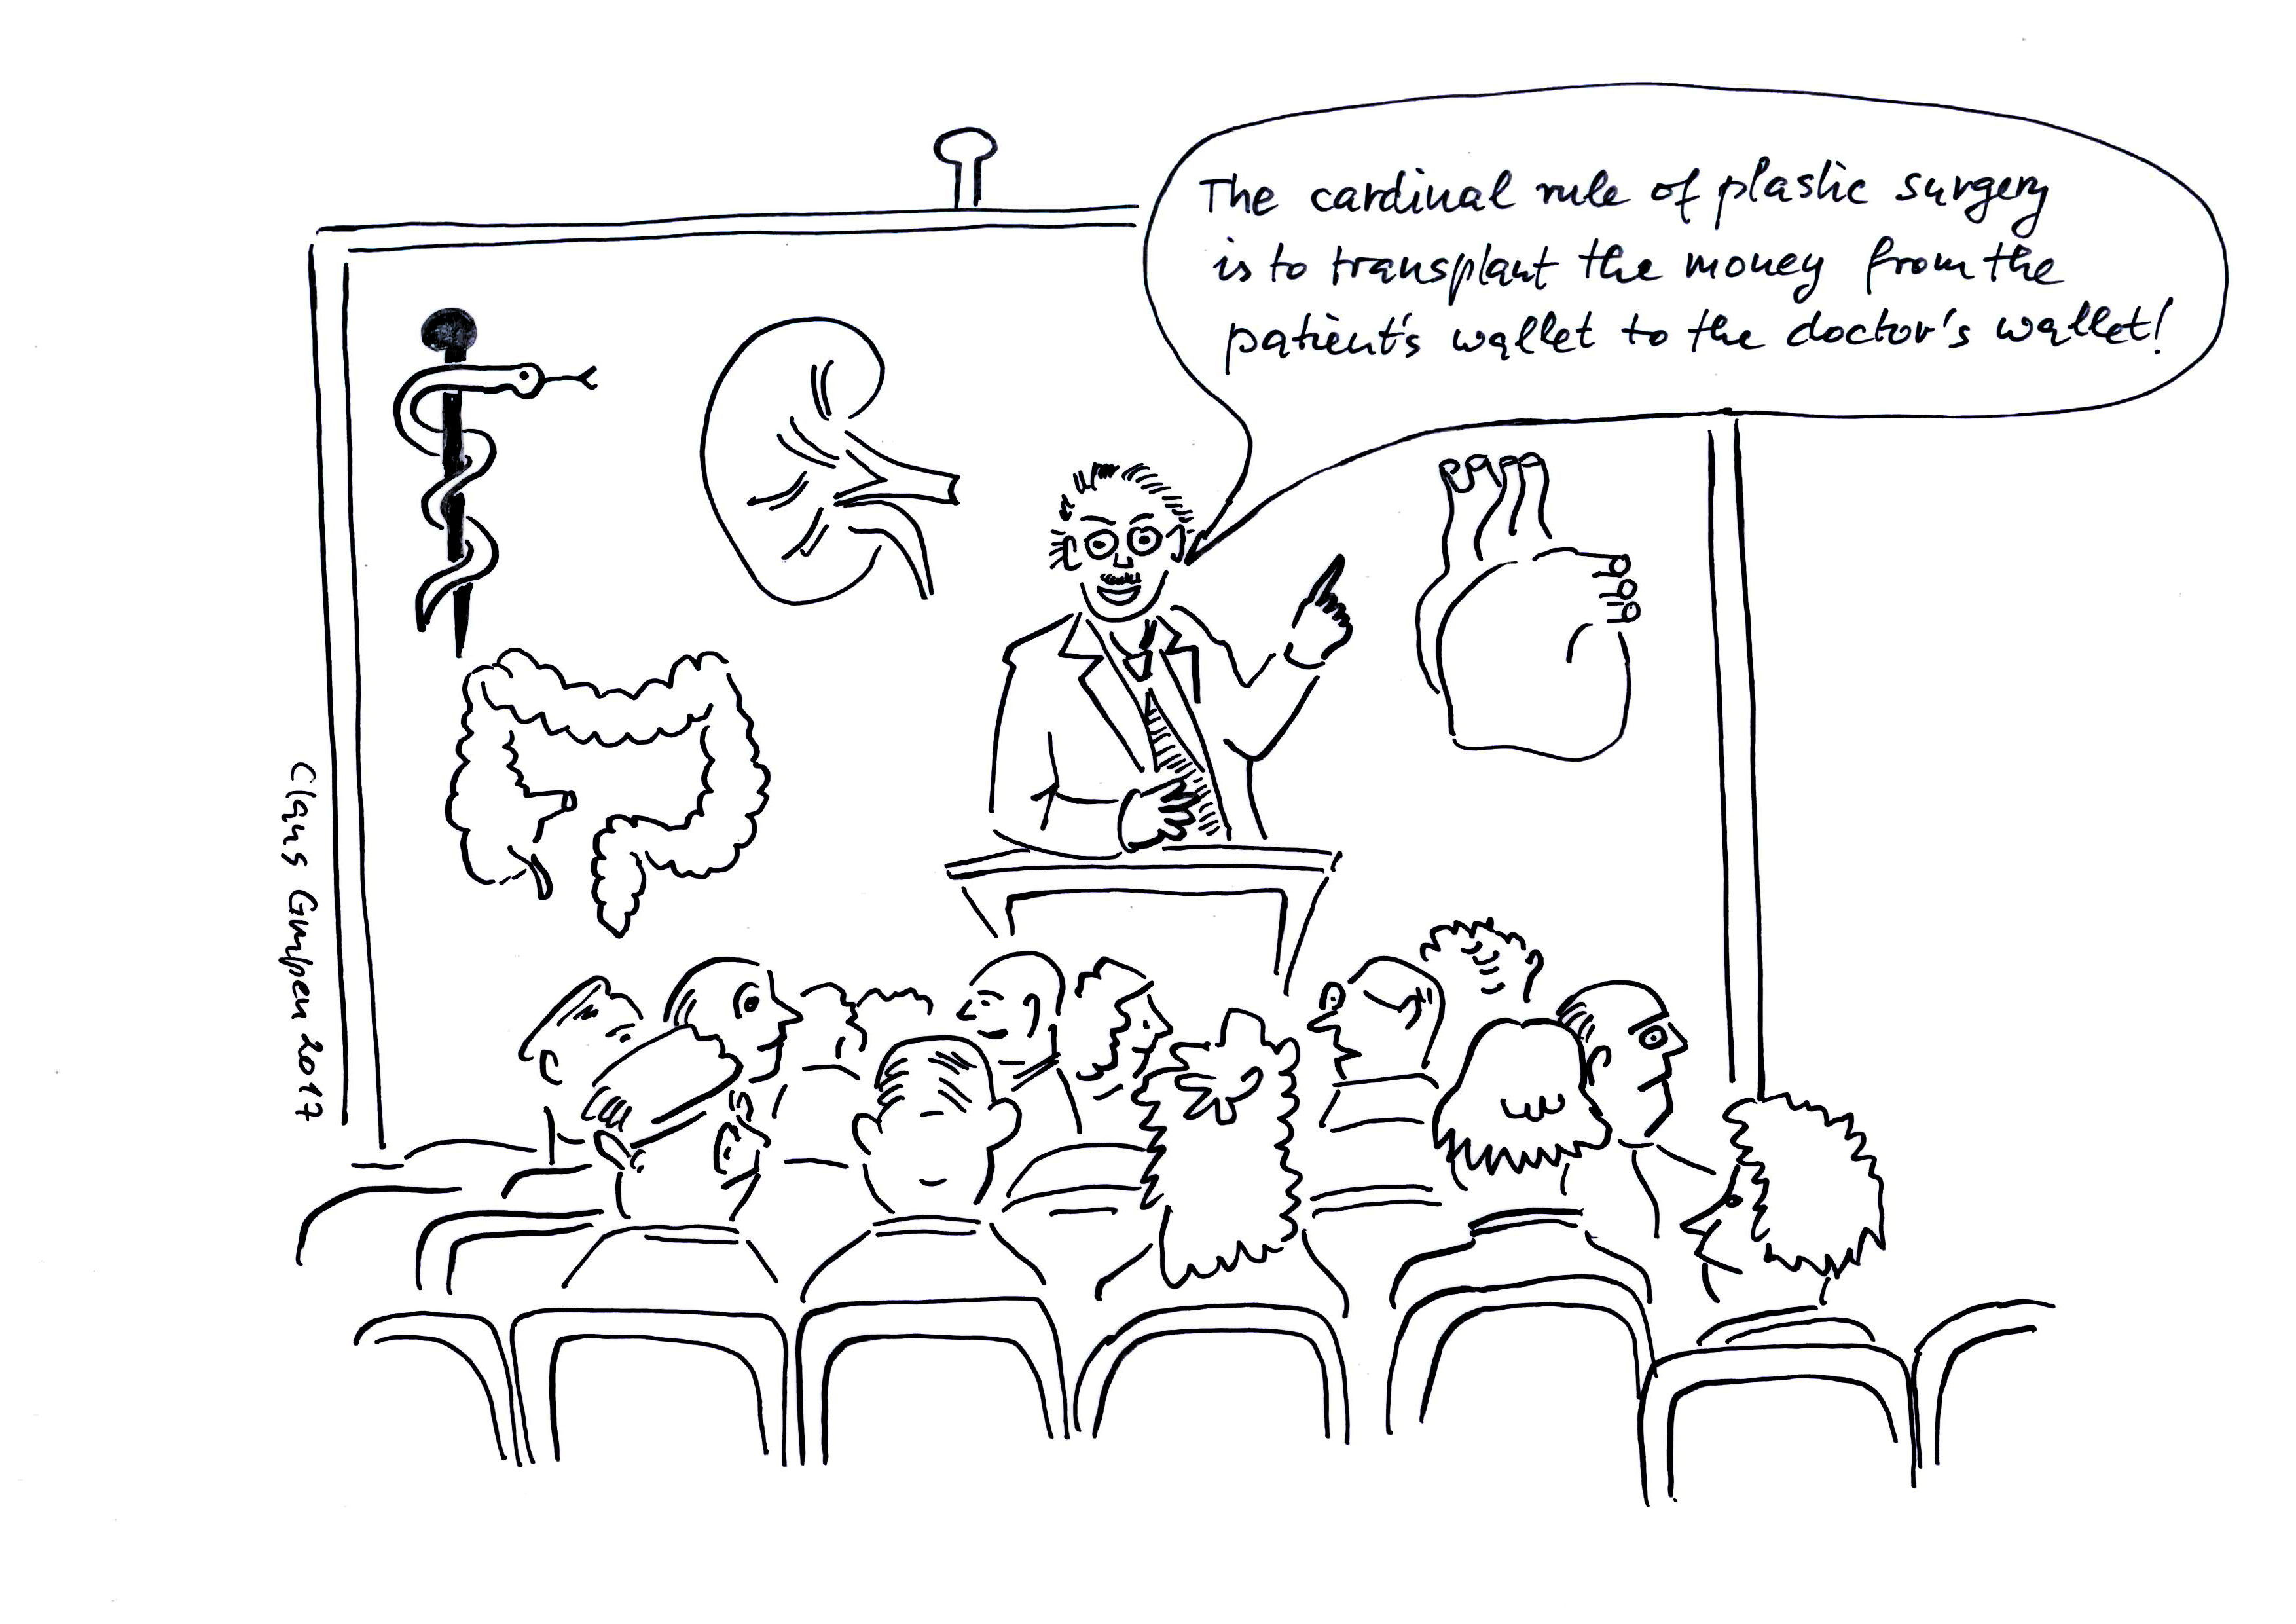 The cardinal rule of plastic surgery
is to transplant the money from the
patient's wallet to the doctor's wallet!
Claus Gumpen 2017